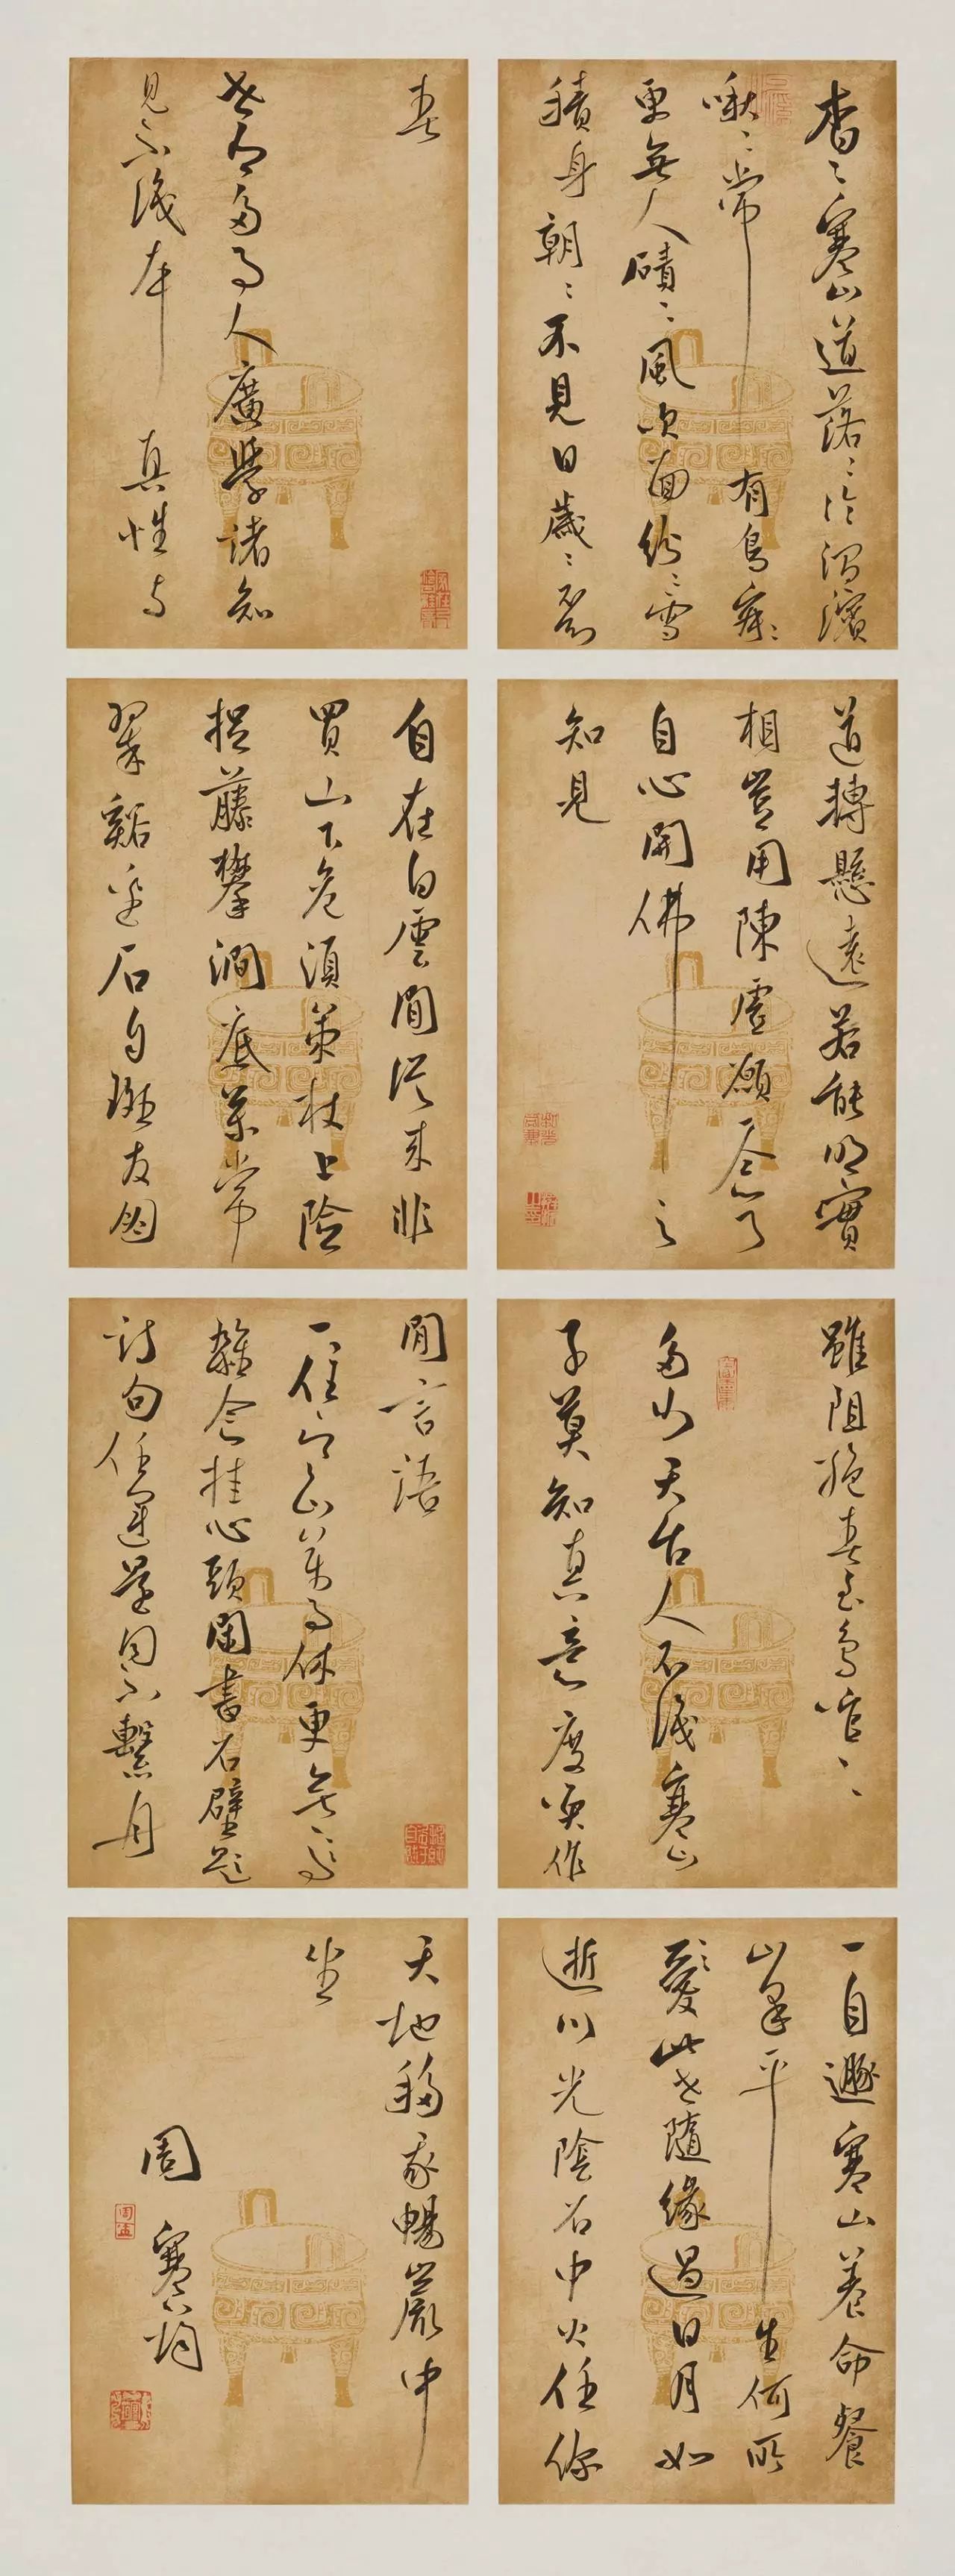 杳〻寒山道落〻冷澗濱
啾〻常有鳥寂〻
更無人磧〻風吹面紛〻雪
積身朝〻不見日歲〻不知
春
世有多事人廣學諸知
見不識本真性与
道轉懸遠若能明實
相豈用陳虛願一念了
自心開佛之
知見
自在白雲閒從來非
買山下危須策杖上險
捉藤攀澗底松常
翠谿邊石自斑友朋
雖阻絕春至鳥喧〻
多少天台人不識寒山
子莫知真意度喚作
閒言語
一住寒山萬事休更無〻
雜念挂心頭閑書石壁題
詩句任運還同不繫舟
一自遯寒山養命餐
山菓平生何所
憂此世隨緣過日月如
逝川光陰石中火任你
天地移我暢巖中
坐
周